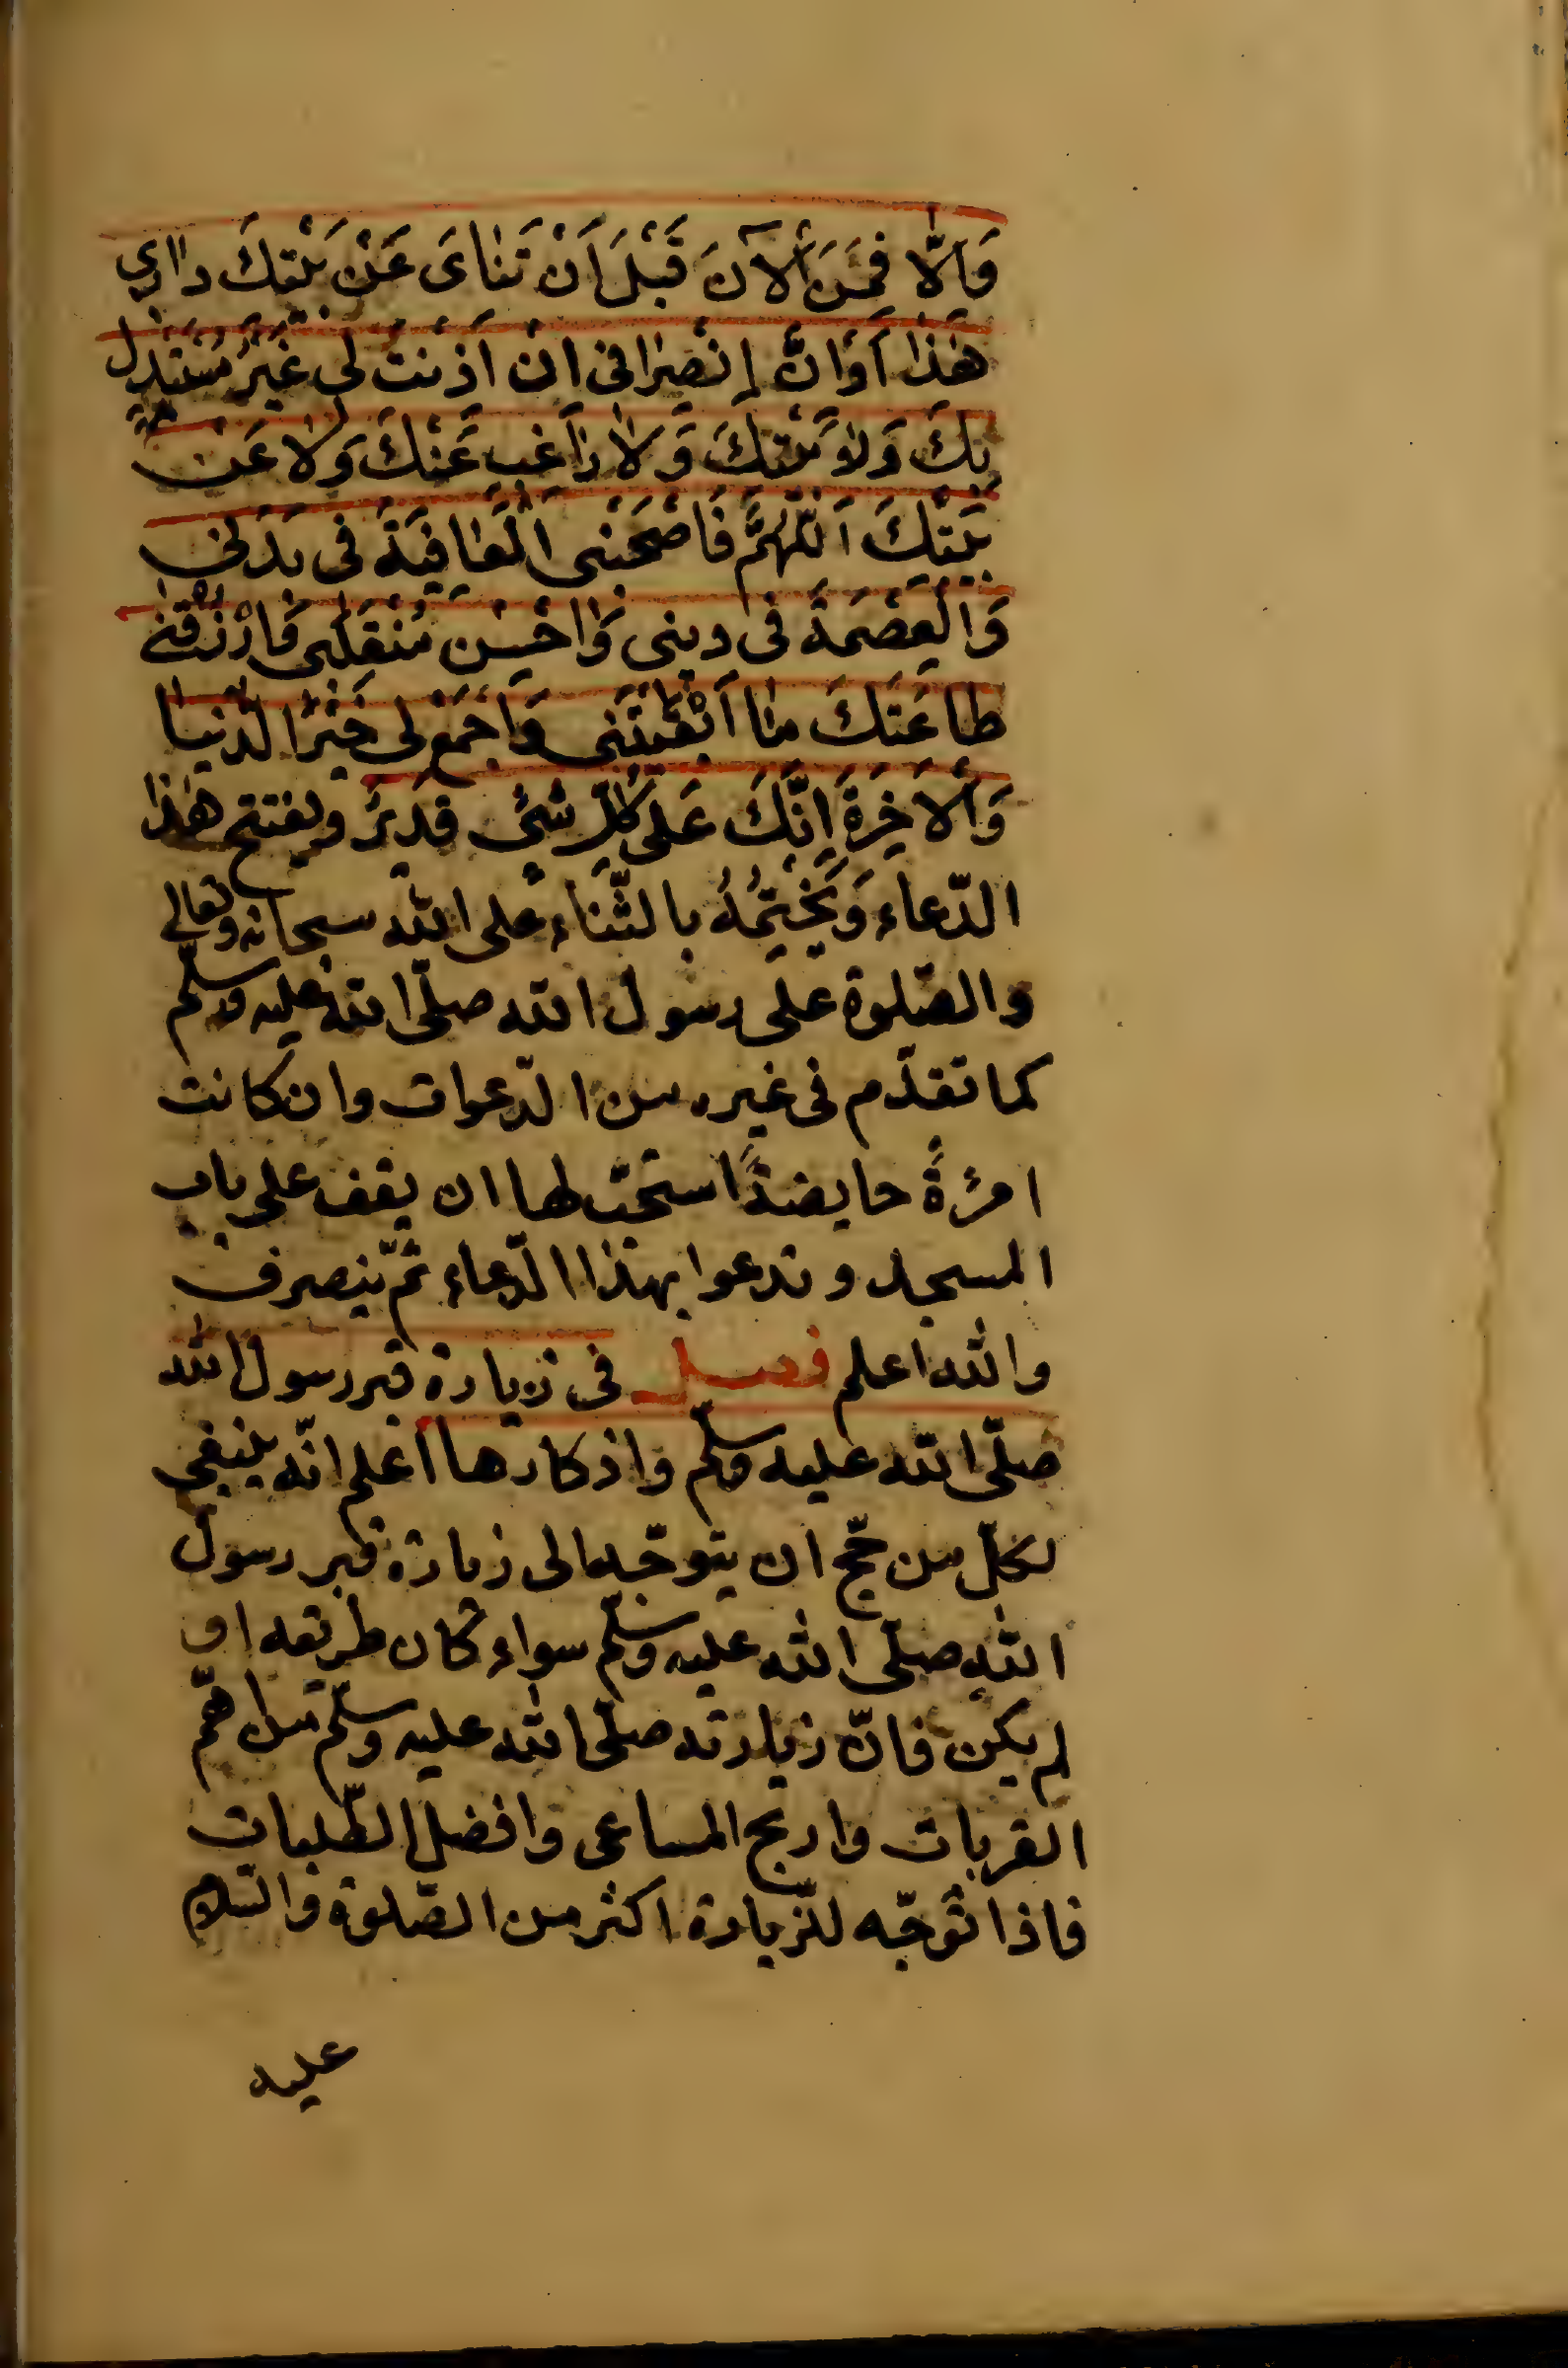 وَاِلّا فَمِنَ الْآنَ قَبْلَ اَنْ تَنْاىٰ عَنْ بَيْتِكَ دٰاري
هٰذٰا اَوٰانُ اِنْصِرٰافى اِنْ اَذِنْتَ لى غَيْرَ مُسْتَبْدِلٍ
بِكَ وَلا بَيْتِكَ وَلا رٰاغِبٍ عَنْكَ وَلا عَنْ
بَيْتِكَ اَللّٰهُمَّ فَاَصْحِبْنى الْعٰافِيَةَ فى بَدَنى
وَالْعِصْمَةَ فى دينى وَاَحْسِنْ مُنْقَلَبى وَارْزُقْنى
طٰاعَتَكَ مٰا اَبْقَيْتَنى وَاجْمَعْ لى خَيْرَ الدُّنْيٰا
وَالْآخِرَةِ اِنَّكَ عَلى كُلِّ شَيْءٍ قَديرٌ ويفتتح هٰذا
الدّعاء وَيَخْتِمُهُ بالثّناء على الله سبحانه وتعالى
والصّلوة على رسول الله صلّى الله عليه وسلّم
كما تقدّم فى غيره من الدّعوات وان كانت
امرَةً حايضةً استحبّ لها ان يقف على باب
المسجد وتدعوا بهذا الدّعاء ثمّ ينصرف
والله اعلم فصل فى زيارة قبر رسول الله
صلّى الله عليه وسلّم واذكارها اعلم انّه ينبغى
لكلّ من حجّ ان يتوجّه الى زيارة قبر رسول
الله صلّى الله عليه وسلّم سواء كان طريقه او
لم يكن فانّ زيارته صلّى الله عليه وسلّم من اهمّ
القربات واربح المساعى وافضل الطّلبات
فاذا توجّه للزّيارة اكثر من الصّلوة والسّلام
عليه